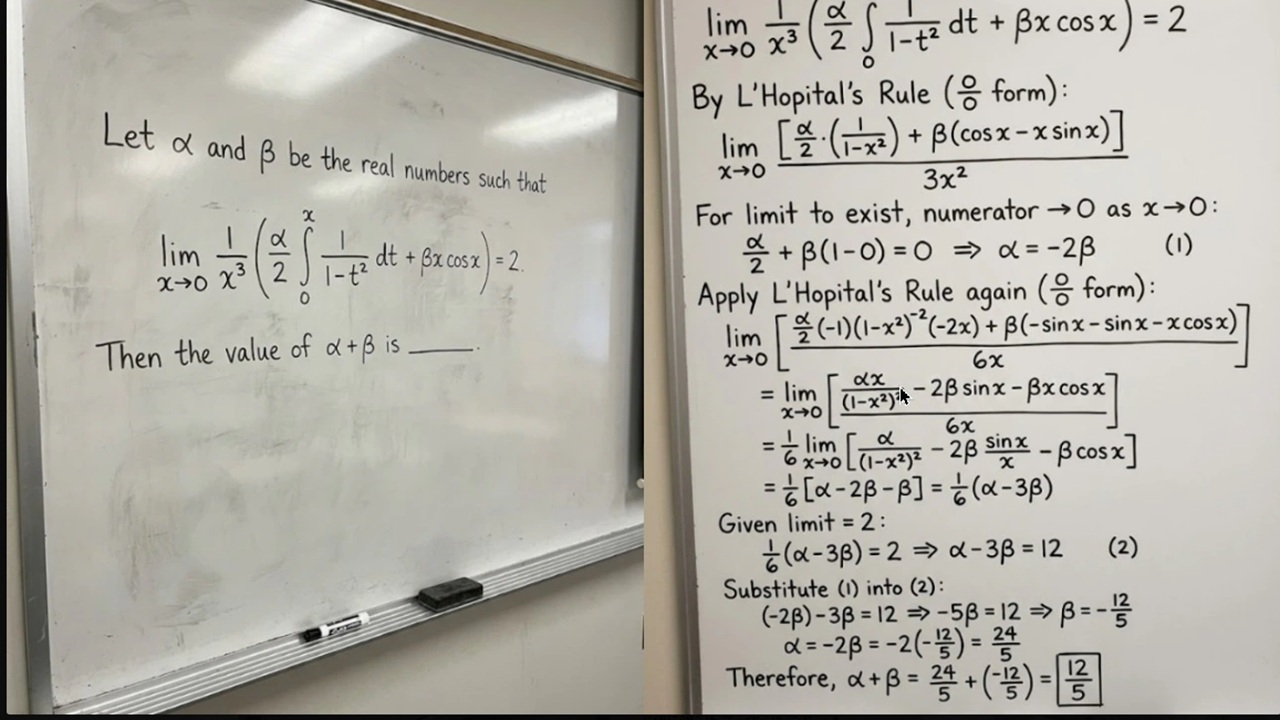 Let α and β be the real numbers such that
lim x→0 1/x³ (α/2 ∫₀ˣ 1/(1-t²) dt + βx cos x) = 2.
Then the value of α+β is _____.
lim x→0 1/x³ (α/2 ∫₀ 1/(1-t²) dt + βx cos x) = 2
By L'Hopital's Rule (0/0 form):
lim x→0 [α/2 · (1/(1-x²)) + β(cos x - x sin x)] / 3x²
For limit to exist, numerator → 0 as x→0:
α/2 + β(1-0) = 0 ⇒ α = -2β (1)
Apply L'Hopital's Rule again (0/0 form):
lim x→0 [α/2 (-1)(1-x²)⁻²(-2x) + β(-sin x - sin x - x cos x) / 6x]
= lim x→0 [αx/(1-x²)² - 2β sin x - βx cos x / 6x]
= 1/6 lim x→0 [α/(1-x²)² - 2β sin x/x - β cos x]
= 1/6 [α - 2β - β] = 1/6 (α - 3β)
Given limit = 2:
1/6 (α - 3β) = 2 ⇒ α - 3β = 12 (2)
Substitute (1) into (2):
(-2β) - 3β = 12 ⇒ -5β = 12 ⇒ β = -12/5
α = -2β = -2(-12/5) = 24/5
Therefore, α + β = 24/5 + (-12/5) = 12/5